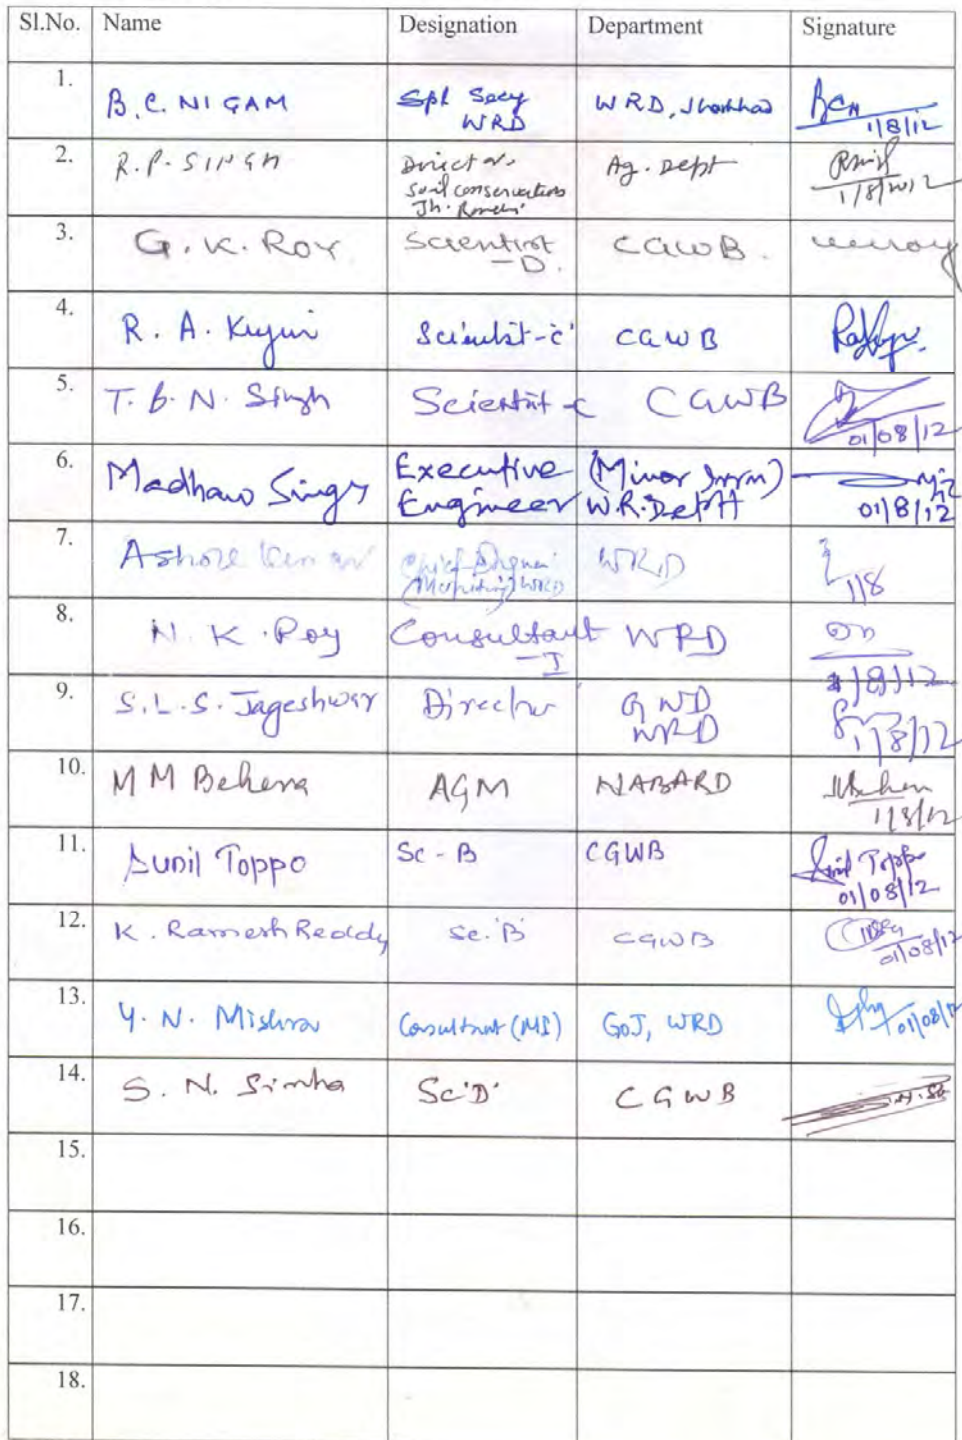 Sl.No. Name Designation Department Signature
1. B.C. NIGAM Spl Secy WRD, Jharkhad
WRD 1/8/12
2. R.P. SINGH Director Ag. Dept
Soil conservation 1/8/2012
Jh. Ranchi
3. G. K. Roy Scientist CGWB.
- D.
4. R. A. Kujur Scientist-C' CGWB
5. T. B. N. Singh Scientist-C CGWB
01/08/12
6. Madhaw Singh Executive (Minor Irrn)
Engineer W.R. Deptt 01/8/12
7. Ashok Kumar Chief Engineer WRD
(Monitoring) WRD 1/8
8. N. K. Roy Consultant WRD
- I 1/8/12
9. S.L.S. Jageshwar Director GWD
WRD 1/8/12
10. M M Behera AGM NABARD
1/8/12
11. Sunil Toppo Sc - B CGWB Sunil Toppo
01/08/12
12. K. Ramesh Reddy Sc. 'B' CGWB
01/08/12
13. Y. N. Mishra Consultant (MI) GoJ, WRD 01/08/12
14. S. N. Sinha Sc 'D' CGWB
15.
16.
17.
18.